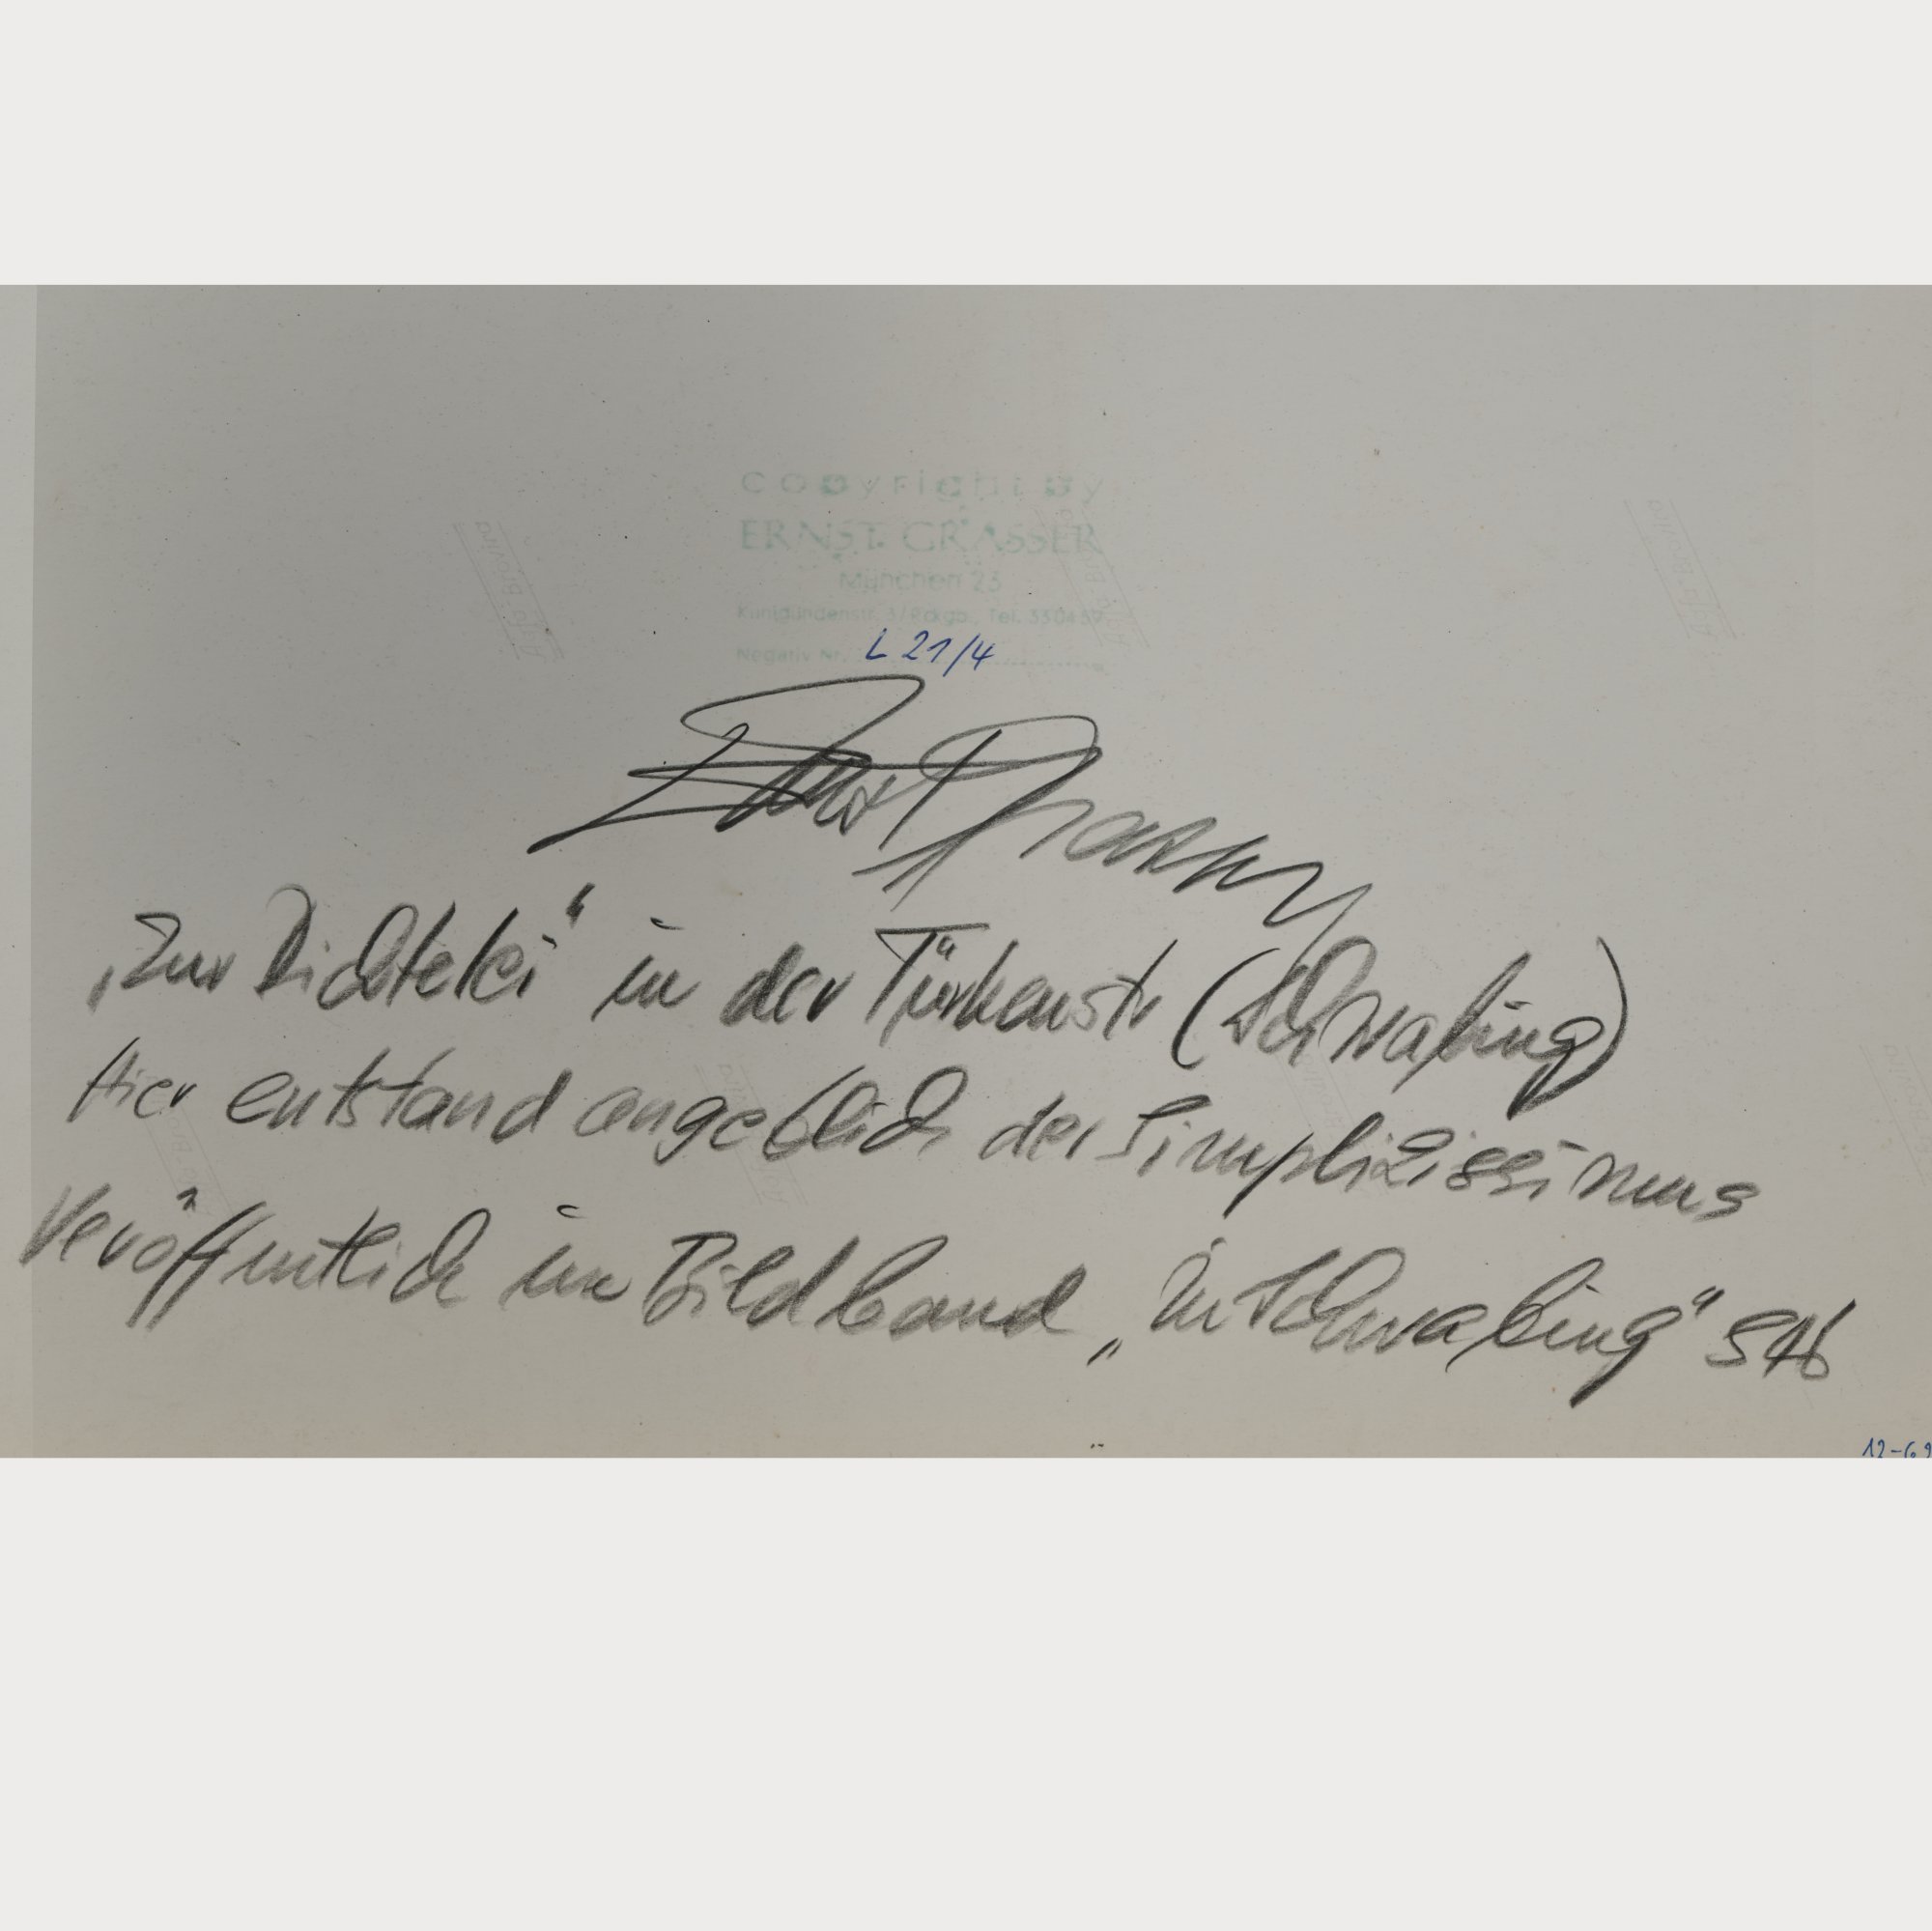 copyright by
ERNST GRASSER
München 23
Kunigundenstr. Tel.
Negativ Nr. L 21/4
Ernst Grasser
„Zur Dichtelei“ in der Türkenstr (Schwabing)
Hier entstand angeblich der Simplizissimus
Veröffentlich im Bildband „In Schwabing“
12-69